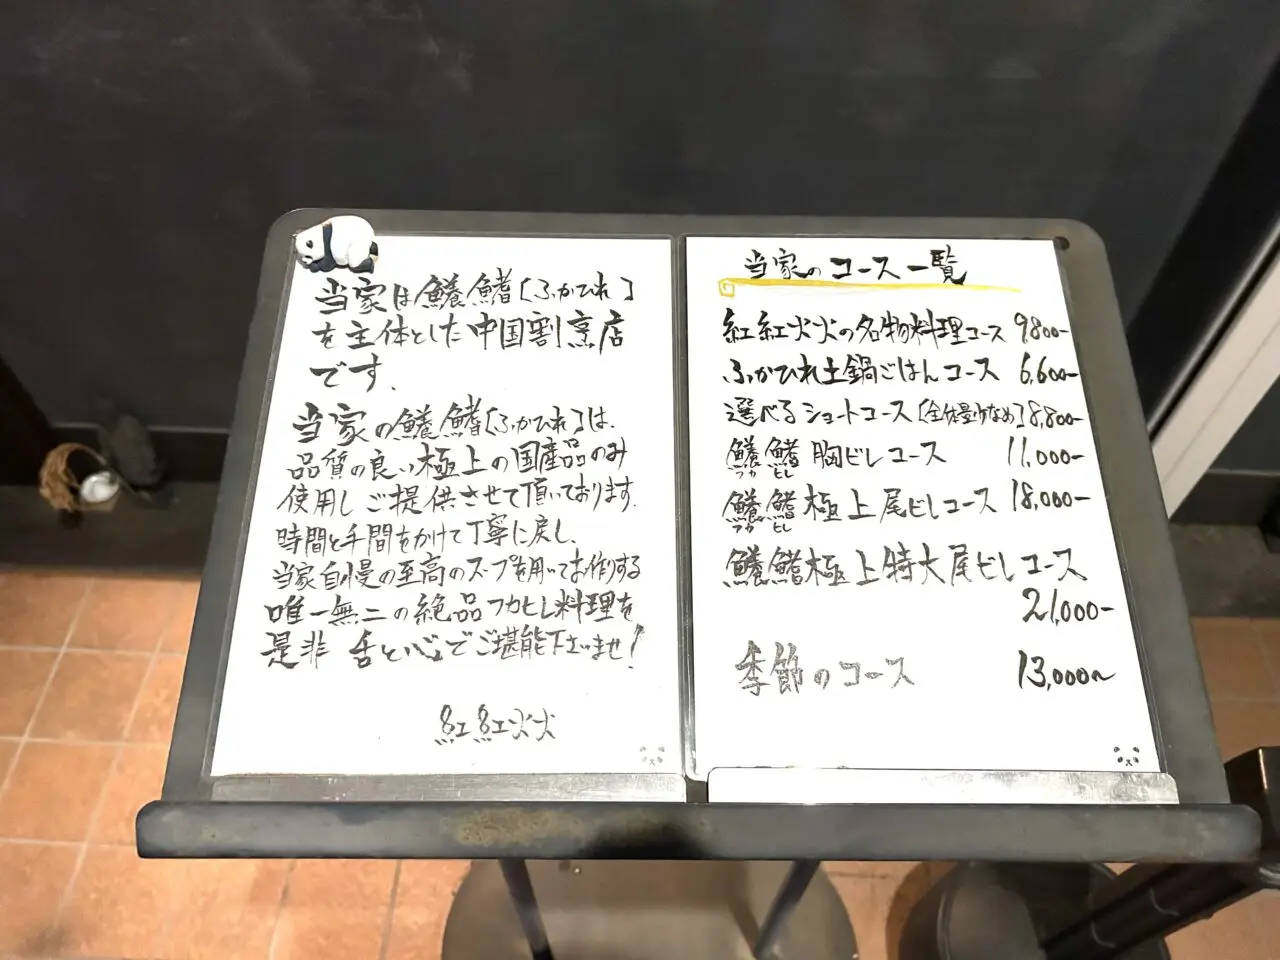 当家は鱶鰭［ふかひれ］
を主体とした中国割烹店
です.
当家の鱶鰭［ふかひれ］は、
品質の良い極上の国産品のみ
使用しご提供させて頂いております.
時間と手間をかけて丁寧に戻し、
当家自慢の至高のスープを用いてお作りする
唯一無二の絶品フカヒレ料理を
是非 舌と心でご堪能下さいませ!
紅紅火火
当家のコース一覧
紅紅火火の名物料理コース 9,800-
ふかひれ土鍋ごはんコース 6,600-
選べるショートコース［全体量少なめ］8,800-
鱶鰭胸ビレコース 11,000-
フカ ヒレ
鱶鰭極上尾ビレコース 18,000-
フカ ヒレ
鱶鰭極上特大尾ビレコース
21,000-
季節のコース 13,000~